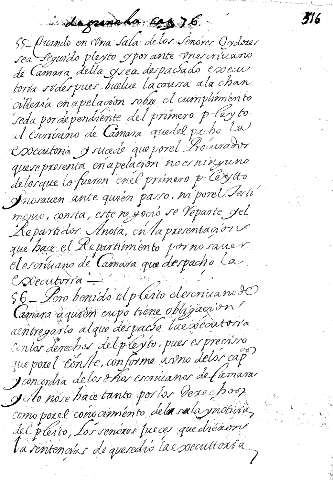 376
55 - Quando en Una Sala de los Señores Oydores
sea seguido pleyto y por ante Un escriuano
de Camara, della y sea despachado execu
toria si despues, buelue la causa a la chan
cilleria en apelación sobre el cumplimento
se da por dependiente del primero pleyto
al escriuano de Camara que despacho la
executoria y sucede que por el Procurador
que se presenta en apelación no es ninguno
de los que lo fueron en el primero pleyto
y no sauen ante quien passo, ni por el testi
monio, consta, este negocio se Reparte y el
Repartidor Anota, en la presentacion
que haze el Repartimiento por no sauer
el escriuano de Camara que despacho la
executoria
56 - Pero benido el pleito el escriuano de
Camara a quien cupo tiene obligacion
a entregarlo al que despacho la executoria
con los derechos del pleyto, pues es preciso
que por el conste, conforme a uno de los cap.
y concordia de los dhos escriuanos de Camara
y esto no se hace tanto por los derechos
como por el conocimiento de la sala y noticia
del pleito, Los señores jueces que dieron
la sentencias de que se dio la executtoria